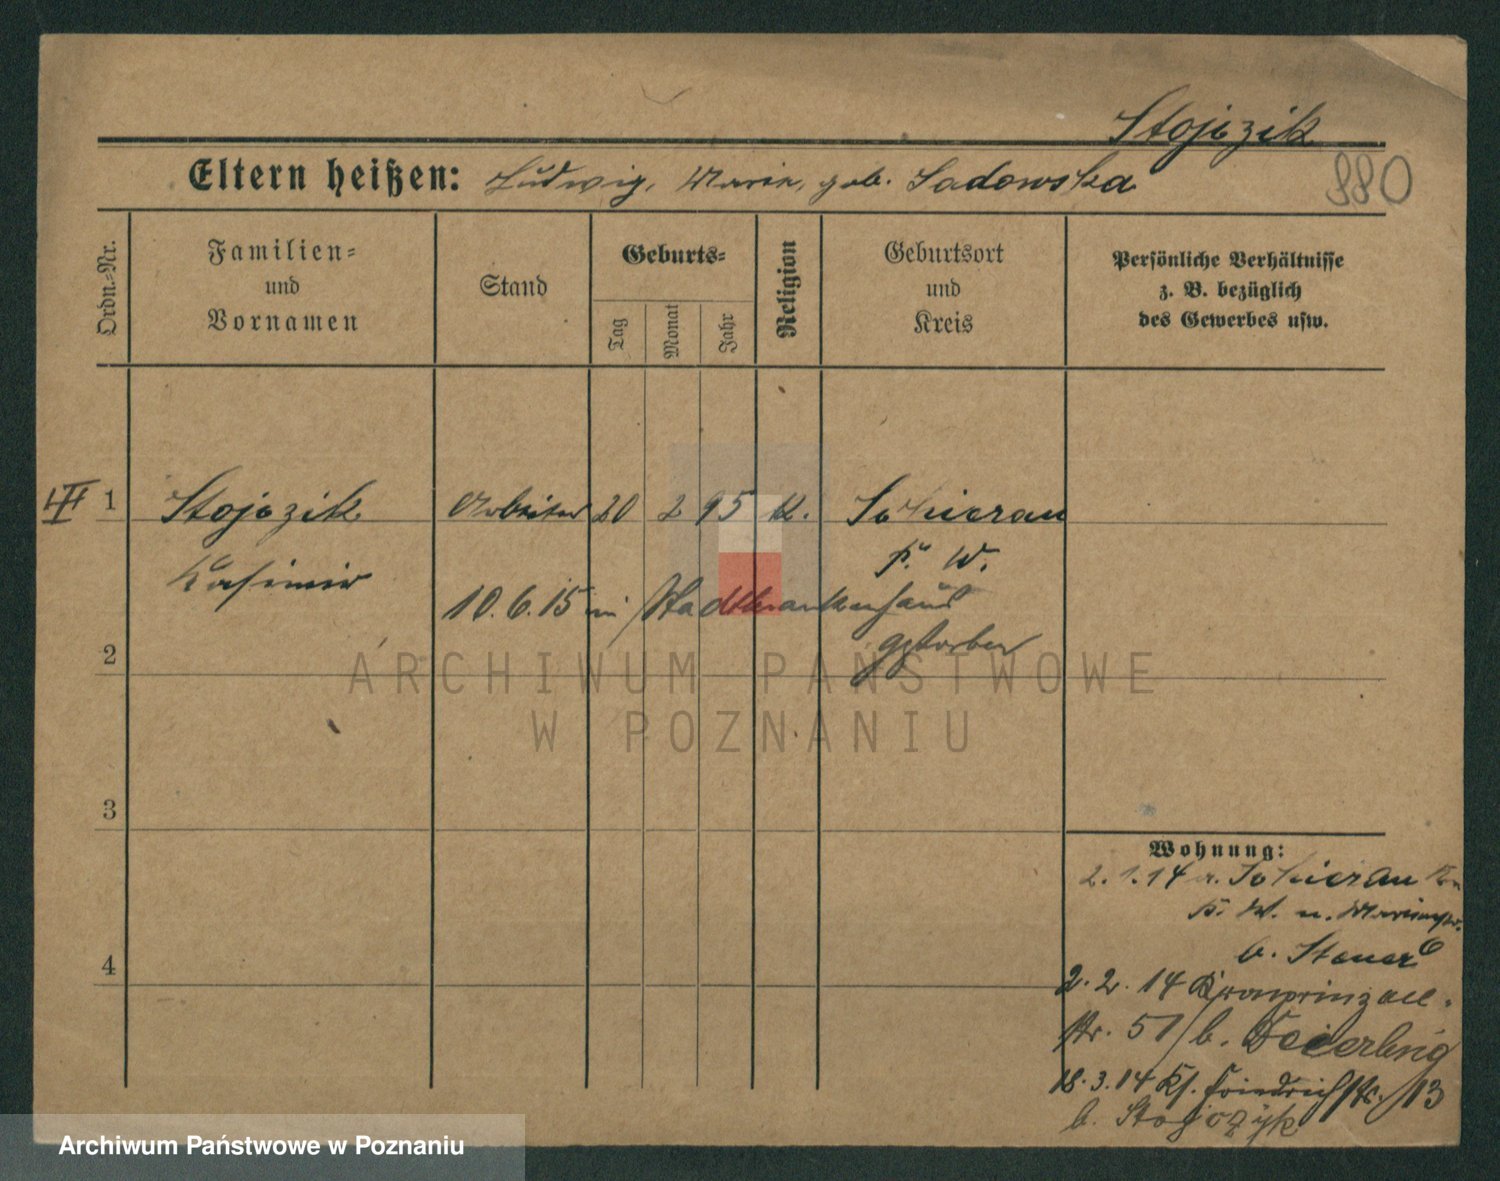 Stojczik
Eltern heißen: Ludwig, Marie, geb. Sadowska
880
Ordn.-Nr.
Familien-
und
Vornamen
Stand
Geburts-
Tag
Monat
Jahr
Religion
Geburtsort
und
Kreis
Persönliche Verhältnisse
z. B. bezüglich
des Gewerbes usw.
1 Stojczik Arbeiter 20 2 95 k.
Kasimir
P. W.
10.6.15 im Stadtkrankenhaus
gestorben
2
ARCHIWUM PAŃSTWOWE
W POZNANIU
3
Wohnung:
2.1.14
P. W. u.
b.
4
2.2.14 Kronprinzall.
str. 51 b.
18.3.14 Ks. Friedrichstr. 13
b. Stojczyk
Archiwum Państwowe w Poznaniu